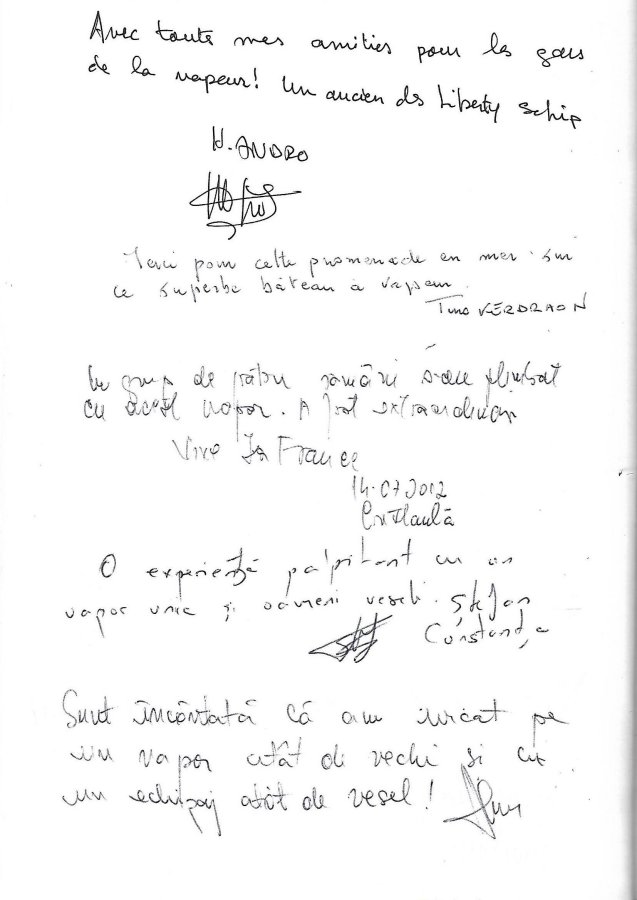 Avec toute mes amities pour les gars
de la vapeur! Un ancien des Liberty Schip
H. ANDRO
Merci pour cette promenade en mer sur
ce superbe bâteau à vapeur.
Tino VERDRAGN
Un grup de patru români s-au plimbat
cu acest vapor. A fost extraordinar
Vive La France
14.07.2012
O experiență palpitant cu un
vapor unic și oameni veseli. Ștefan
Constanța
Sunt încântată că am urcat pe
un vapor atât de vechi si cu
un echipaj atât de vesel!